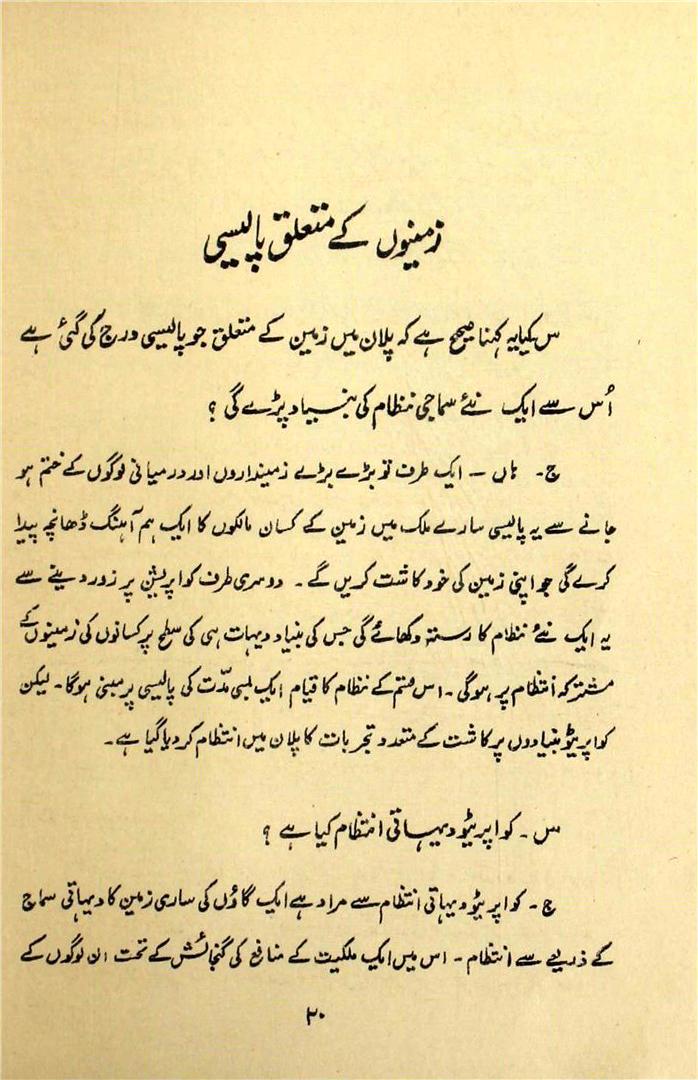 زمینوں کے متعلق پالیسی
س کیا یہ کہنا صحیح ہے کہ پلان میں زمین کے متعلق جو پالیسی درج کی گئی ہے
اُس سے ایک نئے سماجی نظام کی بنیاد پڑے گی ؟
ج۔ ہاں – ایک طرف تو بڑے بڑے زمینداروں اور درمیانی لوگوں کے ختم ہو
جانے سے یہ پالیسی سارے ملک میں زمین کے کسان مالکوں کا ایک ہم آہنگ ڈھانچہ پیدا
کرے گی جو اپنی زمین کی خود کاشت کریں گے ۔ دوسری طرف کواپریشن پر زور دینے سے
یہ ایک نئے نظام کا رستہ دکھائے گی جس کی بنیاد دیہات ہی کی سطح پر کسانوں کی زمینوں کے
مشترکہ انتظام پر ہوگی ۔ اس قسم کے نظام کا قیام ایک لمبی مدّت کی پالیسی پر مبنی ہوگا۔ لیکن
کواپریٹو بنیادوں پر کاشت کے متعدد تجربات کا پلان میں انتظام کر دیا گیا ہے ۔
س ۔ کواپریٹو دیہاتی انتظام کیا ہے ؟
ج ۔ کواپریٹو دیہاتی انتظام سے مراد ہے ایک گاؤں کی ساری زمین کا دیہاتی سماج
کے ذریعے سے انتظام ۔ اس میں ایک ملکیت کے منافع کی گنجائش کے تحت ان لوگوں کے
۲۰